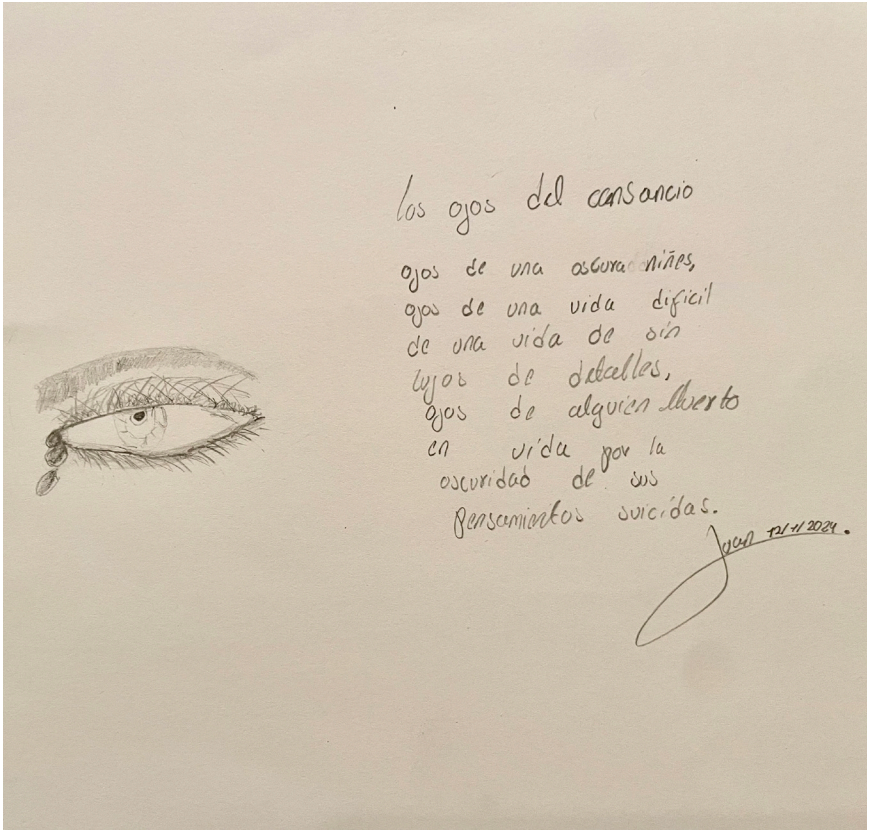 los ojos del cansancio
ojos de una oscura niñes,
ojos de una vida dificil
de una vida de sin
lujos de detalles,
ojos de alguien Muerto
en vida por la
oscuridad de sus
Pensamientos suicídas.
Juan 12/11/2024.